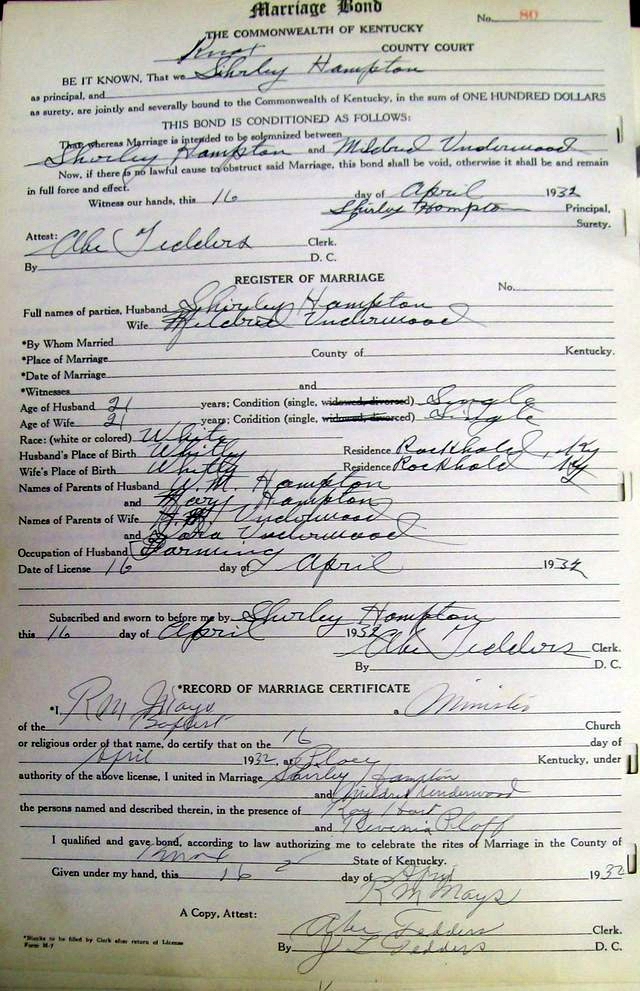 Marriage Bond
No. 80
THE COMMONWEALTH OF KENTUCKY
Knox COUNTY COURT
BE IT KNOWN, That we Shirley Hampton
as principal, and
as surety, are jointly and severally bound to the Commonwealth of Kentucky, in the sum of ONE HUNDRED DOLLARS
THIS BOND IS CONDITIONED AS FOLLOWS:
That whereas Marriage is intended to be solemnized between
Shirley Hampton and Mildred Underwood
Now, if there is no lawful cause to obstruct said Marriage, this bond shall be void, otherwise it shall be and remain
in full force and effect.
Witness our hands, this 16 day of April 1932
Shirley Hampton Principal,
Surety.
Attest:
Abe Tedders Clerk.
By D. C.
REGISTER OF MARRIAGE
No.
Full names of parties, Husband Shirley Hampton
Wife Mildred Underwood
*By Whom Married
*Place of Marriage County of Kentucky.
*Date of Marriage
*Witnesses and
Age of Husband 21 years; Condition (single, widowed, divorced) Single
Age of Wife 21 years; Condition (single, widowed, divorced) Single
Race: (white or colored) White
Husband's Place of Birth Whitley Residence Rockhold, Ky
Wife's Place of Birth Whitley Residence Rockhold Ky
Names of Parents of Husband W.M. Hampton
and Mary Hampton
Names of Parents of Wife Underwood
and Underwood
Occupation of Husband Farming
Date of License 16 day of April 1932
Subscribed and sworn to before me by Shirley Hampton
this 16 day of April 1932
Abe Tedders Clerk.
By D. C.
*RECORD OF MARRIAGE CERTIFICATE
*I, R M Mays a Minister
of the Baptist Church
or religious order of that name, do certify that on the 16 day of
April 1932, at Place Kentucky, under
authority of the above license, I united in Marriage Shirley Hampton
and Mildred Underwood
the persons named and described therein, in the presence of Roy
and
I qualified and gave bond, according to law authorizing me to celebrate the rites of Marriage in the County of
Knox State of Kentucky.
Given under my hand, this 16 day of April 1932
R M Mays
A Copy, Attest:
Abe Tedders Clerk.
By J L Tedders D. C.
*Blanks to be filled by Clerk after return of License
Form M-7